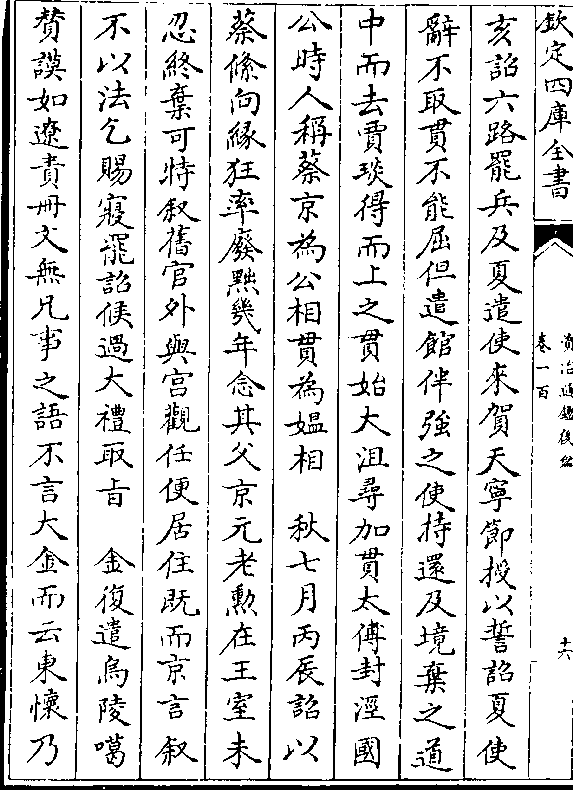 欽定四庫全書
資治通鑑後編
卷一百
十六
亥詔六路罷兵及夏遣使來賀天寧節授以誓詔夏使
辭不取貫不能屈但遣館伴強之使持還及境棄之道
中而去賈琰得而上之貫始大沮尋加貫太傅封涇國
公時人稱蔡京為公相貫為媼相　秋七月丙辰詔以
蔡絛向緣狂率廢黜幾年念其父京元老勲在王室未
忍終棄可特叙舊官外與宮觀任便居住既而京言叙
不以法乞賜寢罷詔候過大禮取旨　金復遣烏陵噶
賛謨如遼責冊文無兄事之語不言大金而云東懐乃